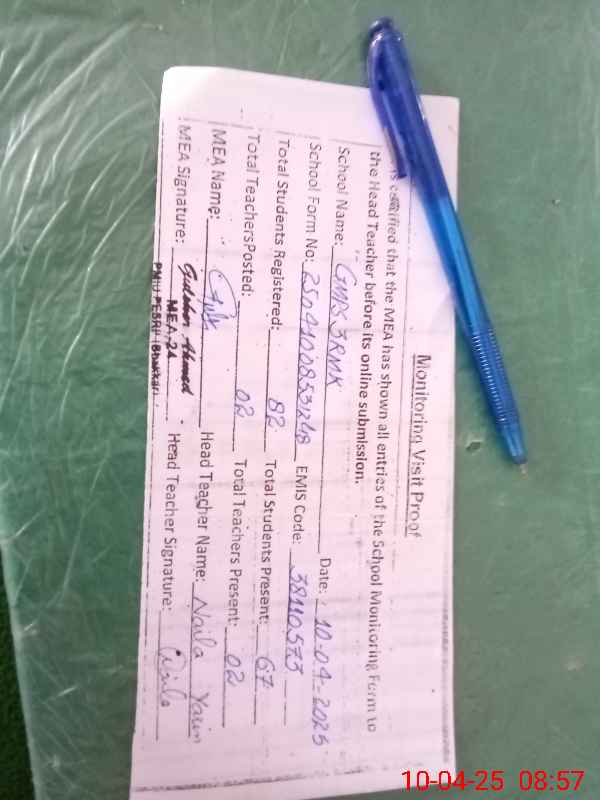 Monitoring Visit Proof
is certified that the MEA has shown all entries of the School Monitoring Form to
the Head Teacher before its online submission.
School Name: GMPS 3RHK Date: 10-04-2025
School Form No: 25041008531248 EMIS Code: 38110573
Total Students Registered: 82 Total Students Present: 67
Total TeachersPosted: 02 Total Teachers Present: 02
MEA Name: Head Teacher Name: Naila Yasin
MEA Signature: Gulsher Ahmed Head Teacher Signature: Naila
MEA-24
PMIU PESRP (Bhakkar)
10-04-25 08:57